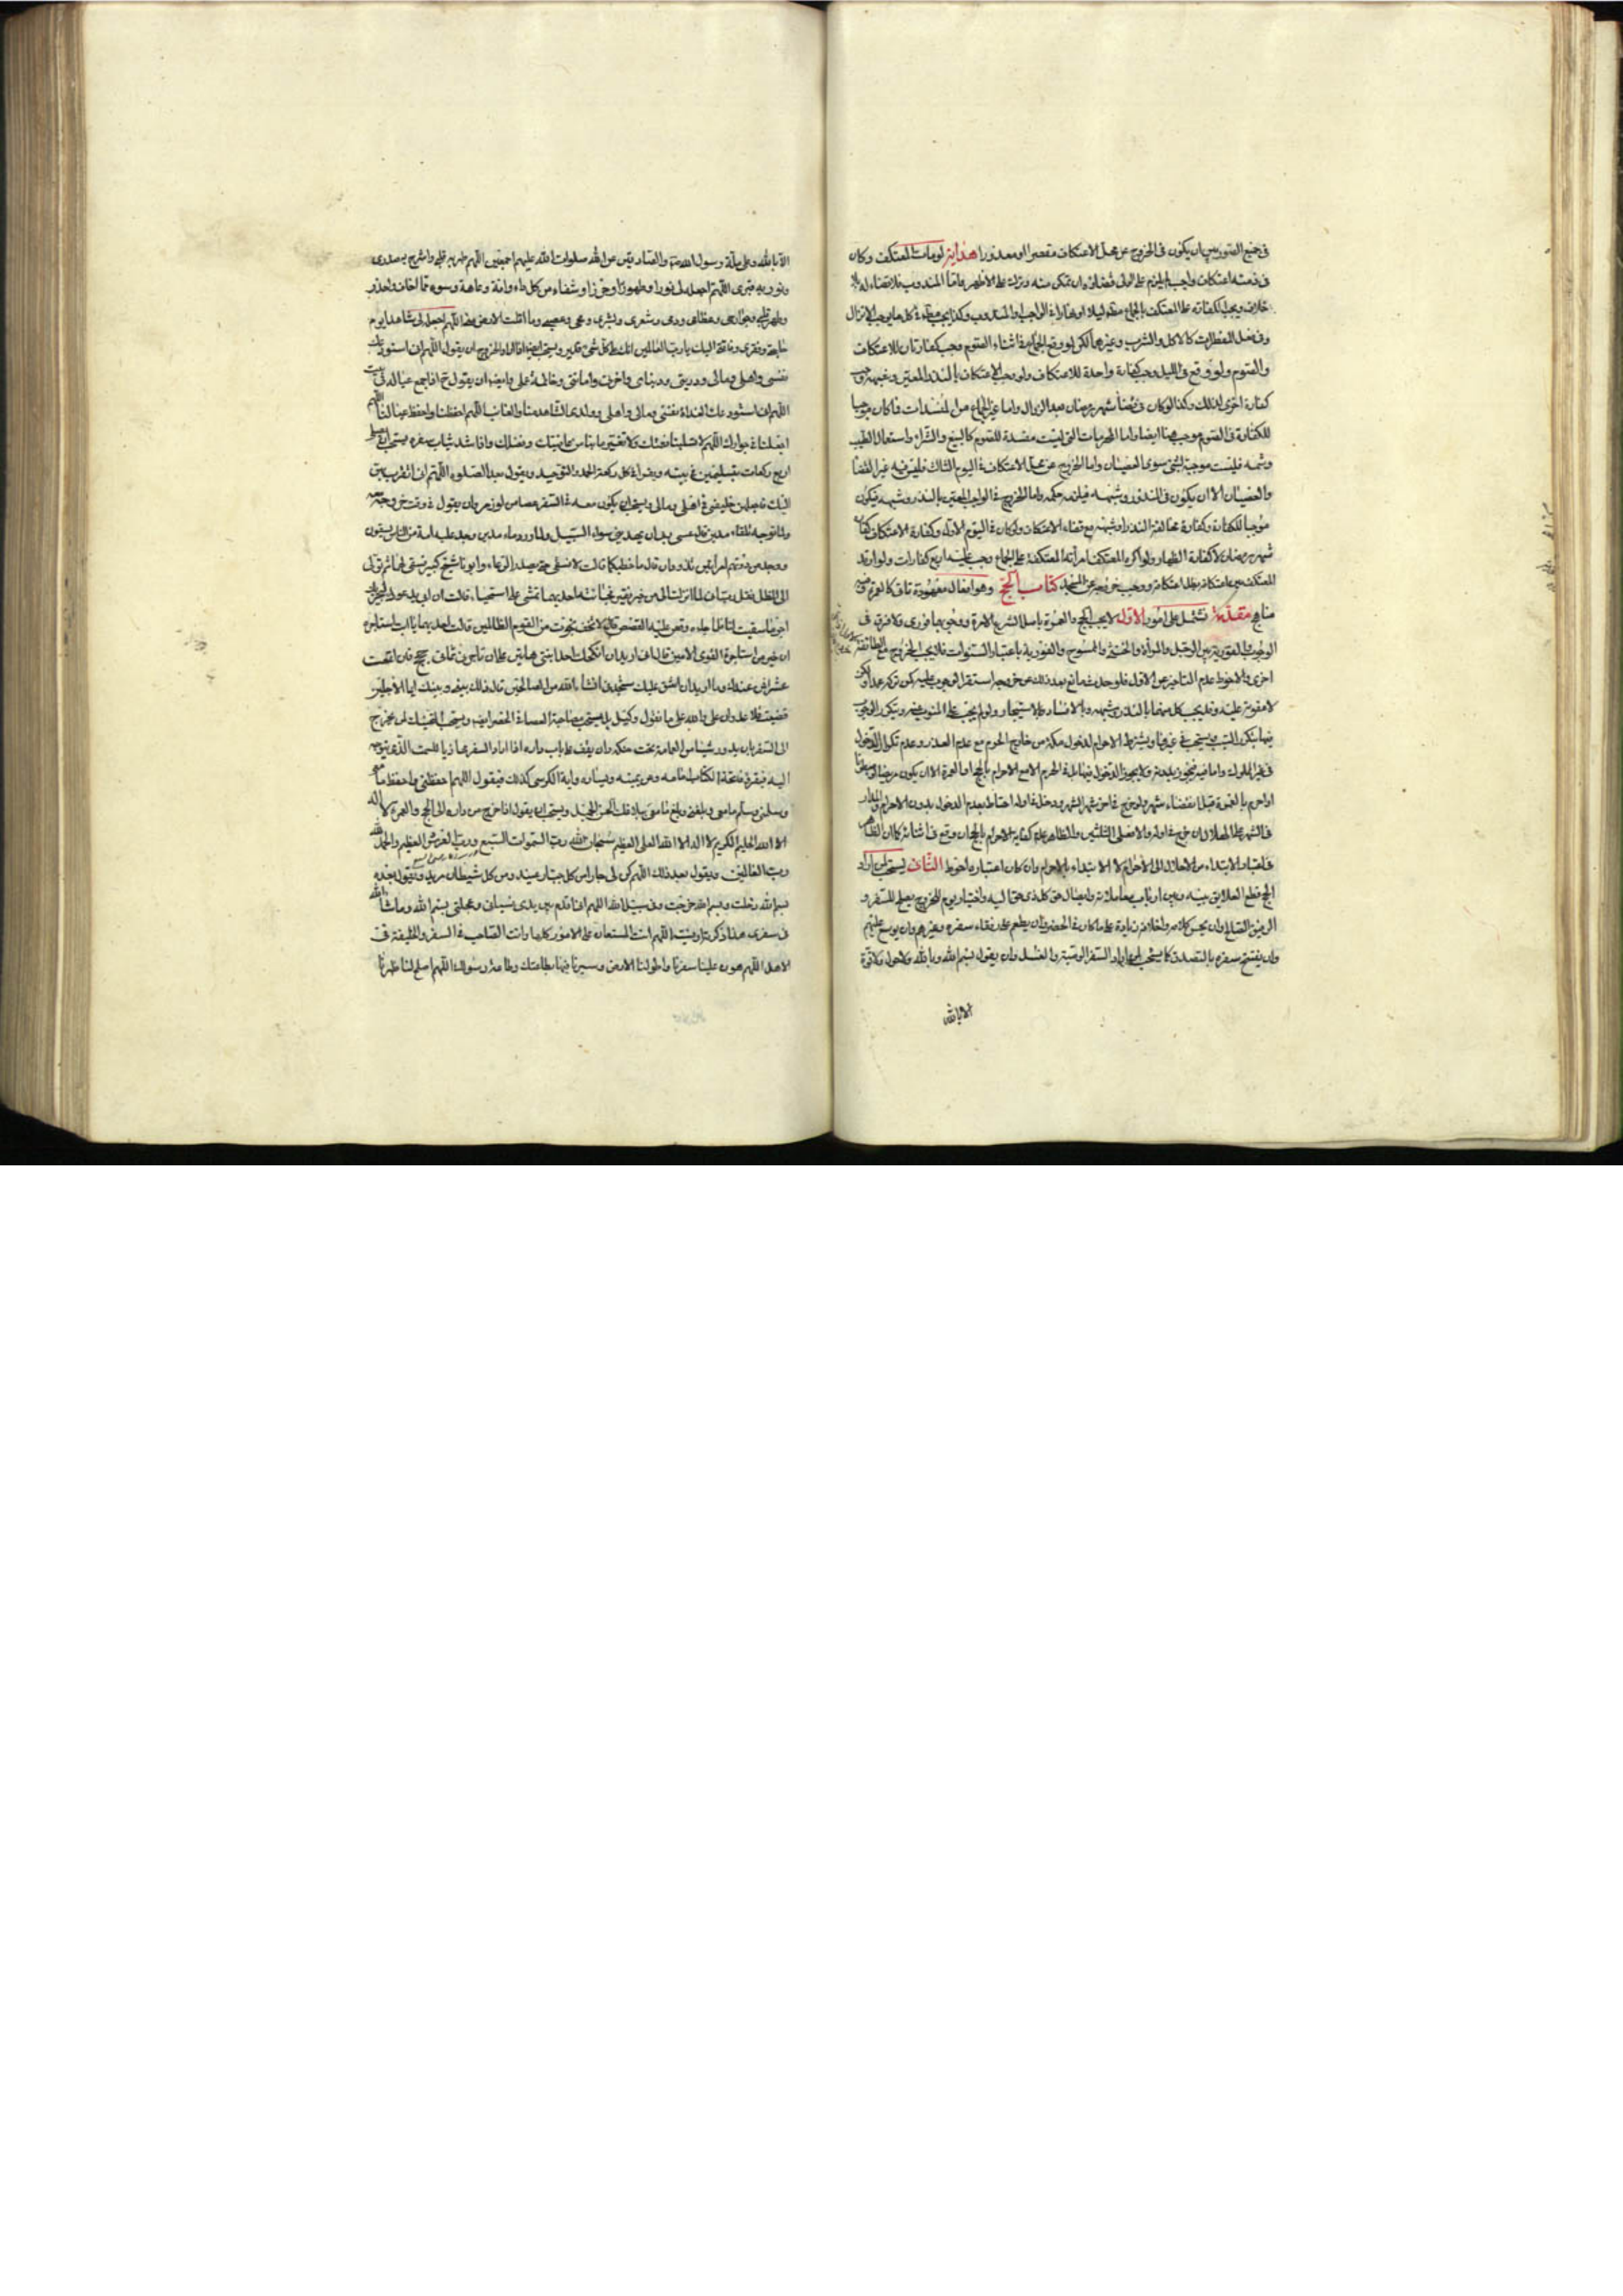 في جميع الصور بين ان يكون في الخروج عن محل الاعتكاف مقصرا او معذورا هداية لو مات المعتكف وكان
في ذمته اعتكاف واجب لم يلزم على الولي قضاؤه وان تمكن منه وتركه على الاظهر واما المندوب فلا قضاء له بلا
خلاف ويجب الكفارة على المعتكف بالجماع مطلقا ليلا او نهارا في الواجب او المندوب وكذا يجب مطلقا في كل ما يوجب الانزال
وفي فعل المفطرات كالاكل والشرب وغيرهما لكن لو وقع الجماع في اثناء الصوم وجب كفارتان للاعتكاف
والصوم ولو وقع في الليل وجب كفارة واحدة للاعتكاف ولو وجب الاعتكاف بالنذر المعين وشبهه وجب
كفارة اخرى لذلك وكذا لو كان في قضاء شهر رمضان بعد الزوال واما غير الجماع من المفسدات فما كان موجبا
للكفارة في الصوم موجب هنا ايضا واما المحرمات التي ليست مفسدة للصوم كالبيع والشراء واستعمال الطيب
وشمه فليست موجبة لشيء سوى العصيان واما الخروج عن محل الاعتكاف في اليوم الثالث فليس فيه غير القضاء
والعصيان الا ان يكون في النذر وشبهه فيلزمه حكمه واما الخروج في الواجب المعين بالنذر وشبهه فيكون
موجبا للكفارة وكفارة مخالفة النذر او شبهه مع قضاء الاعتكاف ولو كان في اليوم الاول وكفارة الاعتكاف كفارة
شهر رمضان لا كفارة الظهار ولو اكره المعتكف امرأته المعتكفة على الجماع وجب عليه اربع كفارات ولو ارتد
المعتكف حين اعتكافه بطل اعتكافه ووجب خروجه عن المسجد كتاب الحج وهو افعال معهودة تاتي كالعمرة وفيه
مناهج مقدمة تشتمل على امور الاول لا يجب الحج والعمرة باصل الشرع الا مرة ووجوبها فوري ولا فرق في
الوجوب والفورية بين الرجل والمرأة والخنثى والممسوح والفورية باعتبار السنوات فلا يجب الخروج مع الطائفة
اخرى والاحوط عدم التاخير عن الاول فلو حدث مانع بعد ذلك عن خروجه استقر الوجوب عليه كمن تركه عمدا ولكن
لا عقوبة عليه وقد يجب كل منهما بالنذر وشبهه وبالافساد والاستيجار ولو لم يجب على المنوب عنه ويتكرر الوجوب
فيها بتكرر السبب ويستحب في غيرها ويشترط الاحرام لدخول مكة من خارج الحرم مع عدم العذر وعدم تكرار الدخول
احرم بالعمرة قبل انقضاء شهر ولو خرج في اخر شهر الشهر ودخل في اوله احتاط بعدم الدخول بدون الاحرام والمدار
في الشهر على الهلال وان خرج في اوله والا فعلى الثلثين والظاهر عدم كفاية الاحرام بالحج ان وقع في اثنائه كما ان الظاهر
في اعتبار الابتداء من الاحلال الى الاحرام لا الابتداء بالاحرام وان كان اعتباره احوط الثاني يستحب لمن اراد
الحج قطع العلايق بينه وبين ارباب معاملاته وايصال حق كل ذي حق اليه واختيار يوم للخروج يصلح للسفر و
الرفيق الصالح وان يحسن كلامه واخلاقه زيادة على ما كان في الحضر وان يطعم على رفقاء سفره وغيرهم وان يوسع عليهم
وان يفتتح سفره بالتصدق كما يستحب لمن اراد السفر الوصية والغسل وان يقول بسم الله وبالله ولا حول ولا قوة
الا بالله
الا بالله وعلى ملة رسول الله ص والصادقين عن الله صلوات الله عليهم اجمعين اللهم طهر به قلبي واشرح به صدري
ونور به قبري اللهم اجعله لي نورا وطهورا وحرزا وشفاء من كل داء وافة وعاهة وسوء مما اخاف واحذر
وطهر قلبي وجوارحي وعظامي ودمي وشعري وبشري ومخي وعصبي وما اقلت الارض مني اللهم اجعله لي شاهدا يوم
حاجتي وفقري وفاقتي اليك يا رب العالمين انك على كل شيء قدير ويستحب ايضا اذا اراد الخروج ان يقول اللهم اني استودعك
نفسي واهلي ومالي وذريتي ودنياي واخرتي وامانتي وخاتمة عملي وايضا ان يقول ح اذا جمع عياله في بيت
اللهم اني استودعك الغداة نفسي ومالي واهلي وولدي الشاهد منا والغائب اللهم احفظنا واحفظ علينا اللهم
اجعلنا في جوارك اللهم لا تسلبنا نعمتك ولا تغير ما بنا من عافيتك وفضلك واذا شد ثياب سفره يستحب ان يصلي
اربع ركعات بتسليمتين في بيته ويقرا في كل ركعة الحمد والتوحيد ويقول بعد الصلوة اللهم اني اتقرب بهن
اليك فاجعلهن خليفتي في اهلي ومالي ويستحب ان يكون معه في السفر عصا من لوز مر وان يقول في وقت خروجه
ولما توجه تلقاء مدين قال عسى ربي ان يهديني سواء السبيل ولما ورد ماء مدين وجد عليه امة من الناس يسقون
ووجد من دونهم امرأتين تذودان قال ما خطبكما قالتا لا نسقي حتى يصدر الرعاء وابونا شيخ كبير فسقى لهما ثم تولى
الى الظل فقال رب اني لما انزلت الي من خير فقير فجائته احديهما تمشي على استحياء قالت ان ابي يدعوك ليجزيك
اجر ما سقيت لنا فلما جاءه وقص عليه القصص قال لا تخف نجوت من القوم الظالمين قالت احديهما يا ابت استاجره
ان خير من استاجرت القوي الامين قال اني اريد ان انكحك احدى ابنتي هاتين على ان تاجرني ثماني حجج فان اتممت
عشرا فمن عندك وما اريد ان اشق عليك ستجدني انشاء الله من الصالحين قال ذلك بيني وبينك ايما الاجلين
قضيت فلا عدوان علي والله على ما نقول وكيل بل يستحب مصاحبة العصا في الحضر ايضا ويستحب التحنك لمن يخرج
الى السفر بان يدور شيئا من العمامة تحت حنكه وان يقف على باب داره اذا اراد السفر محاذيا للسمت الذي يتوجه
اليه فيقرء فاتحة الكتاب امامه وعن يمينه ويساره واية الكرسي كذلك فيقول اللهم احفظني واحفظ ما معي
وسلمني وسلم ما معي وبلغني وبلغ ما معي ببلاغك الحسن الجميل ويستحب ان يقول اذا خرج من داره الى الحج والعمرة لا اله
الا الله الحليم الكريم لا اله الا الله العلي العظيم سبحان الله رب السموات السبع ورب العرش العظيم والحمد لله
رب العالمين ويقول بعد ذلك اللهم كن لي جارا من كل جبار عنيد ومن كل شيطان مريد ويقول بعده
بسم الله دخلت وبسم الله خرجت وفي سبيل الله اللهم اني اقدم بين يدي نسياني وعجلتي بسم الله وما شاء الله
في سفري هذا ذكرته او نسيته اللهم انت المستعان على الامور كلها وانت الصاحب في السفر والخليفة في
الاهل اللهم هون علينا سفرنا واطو لنا الارض وسيرنا فيها بطاعتك وطاعة رسولك اللهم اصلح لنا ظهرنا